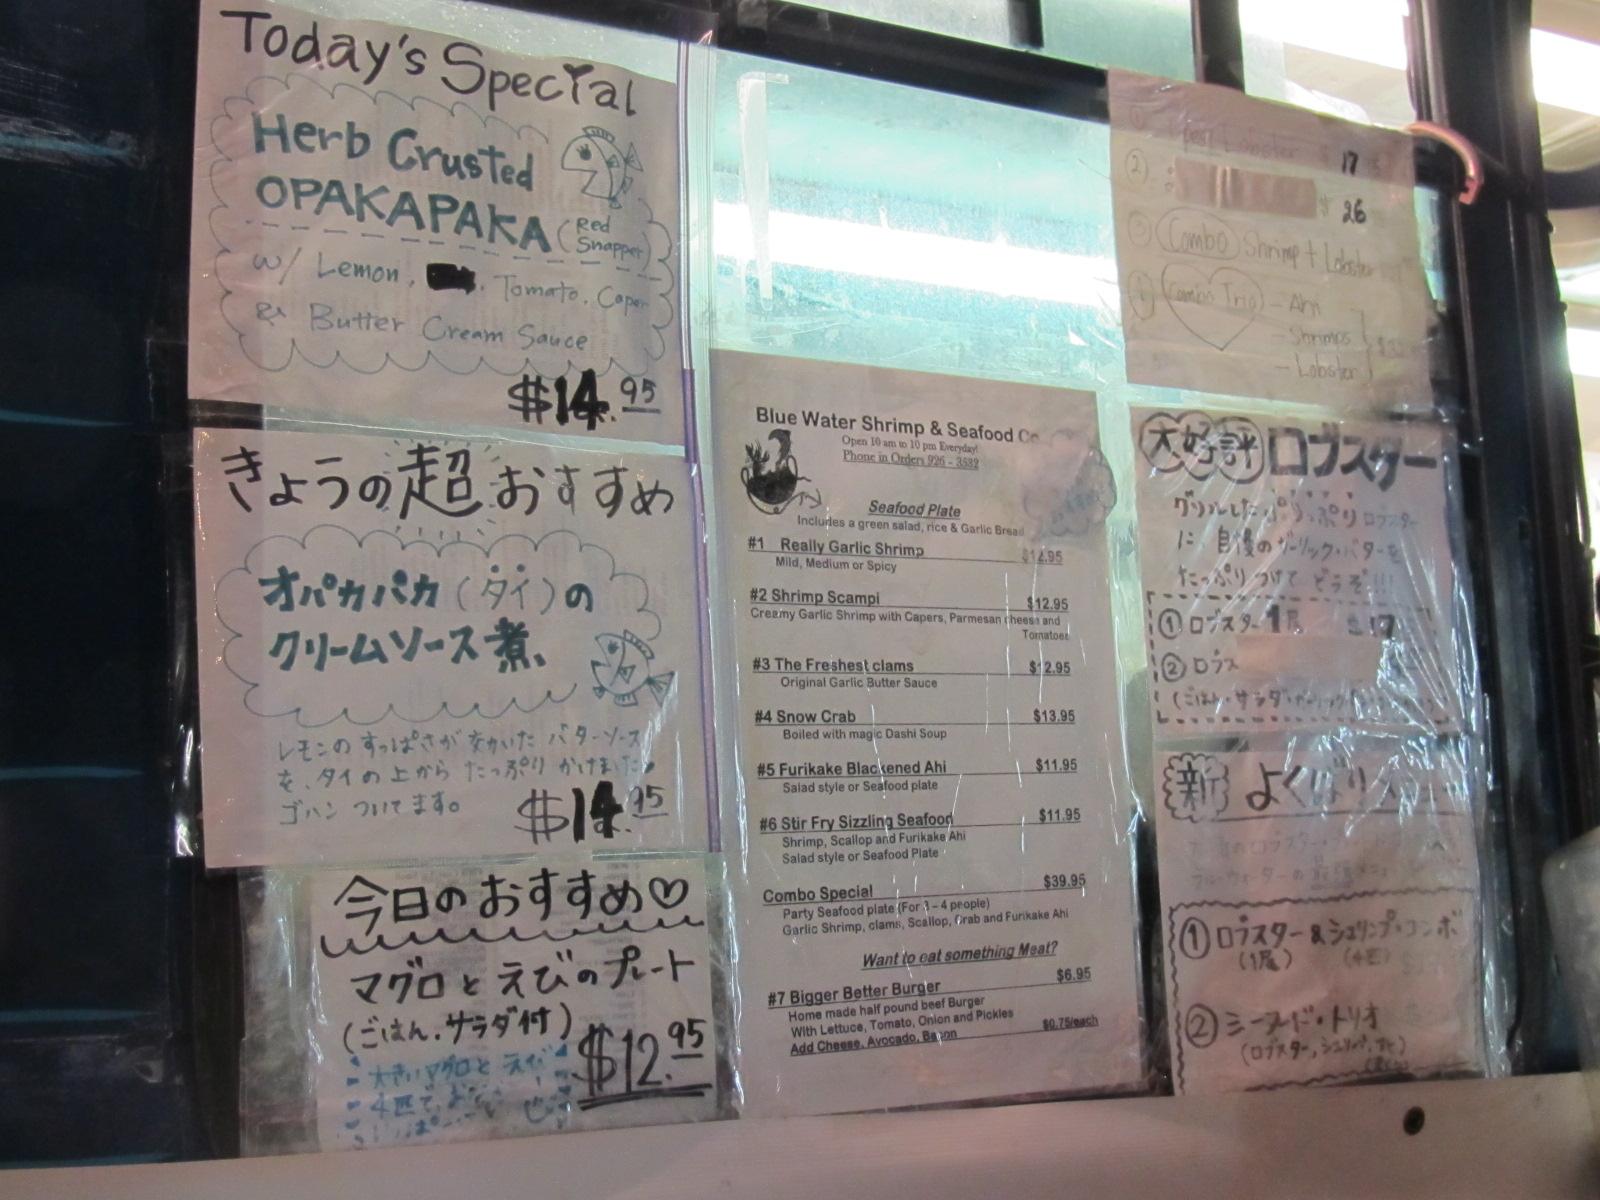 Today's Special
Herb Crusted
OPAKAPAKA (Red Snapper)
w/ Lemon, , Tomato, Caper
& Butter Cream Sauce
$14.95
きょうの超おすすめ
オパカパカ(タイ)の
クリームソース煮、
レモンのすっぱさが効いたバターソース
を、タイの上からたっぷりかけました。
ゴハンついてます。
$14.95
今日のおすすめ♡
マグロとえびのプレート
(ごはん、サラダ付)
$12.95
大きいマグロとえび
4匹で
Blue Water Shrimp & Seafood Co
Open 10 am to 10 pm Everyday!
Phone in Orders 926 - 3532
Seafood Plate
Includes a green salad, rice & Garlic Bread
#1 Really Garlic Shrimp $12.95
Mild, Medium or Spicy
#2 Shrimp Scampi $12.95
Creamy Garlic Shrimp with Capers, Parmesan cheese and
Tomatoes
#3 The Freshest clams $12.95
Original Garlic Butter Sauce
#4 Snow Crab $13.95
Boiled with magic Dashi Soup
#5 Furikake Blackened Ahi $11.95
Salad style or Seafood plate
#6 Stir Fry Sizzling Seafood $11.95
Shrimp, Scallop and Furikake Ahi
Salad style or Seafood Plate
Combo Special $39.95
Party Seafood plate (For 3 - 4 people)
Garlic Shrimp, clams, Scallop, Crab and Furikake Ahi
Want to eat something Meat?
#7 Bigger Better Burger $6.95
Home made half pound beef Burger
With Lettuce, Tomato, Onion and Pickles
Add Cheese, Avocado, Bacon $0.75/each
① Lobster $17
② $26
③ Combo Shrimp + Lobster
Combo Trio - Ahi
- Shrimps
- Lobster
大好評 ロブスター
グリルしたぷりっぷりロブスター
に自慢のガーリック・バターを
たっぷりつけてどうぞ!!!
① ロブスター 1尾 $17
② ロブス
(ごはん・サラダ・ガーリック
新 よくばりメニュー
① ロブスター&シュリンプ・コンボ
(1尾) (4匹)
② シーフード・トリオ
(ロブスター, シュリンプ,